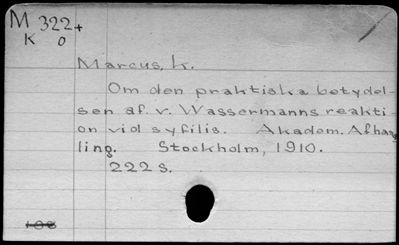 M 322+
K o
Marcus, K.
Om den praktiska betydel-
sen af v. Wassermanns reakti-
on vid syfilis. Akadem. Afhand
ling. Stockholm, 1910.
222 s.